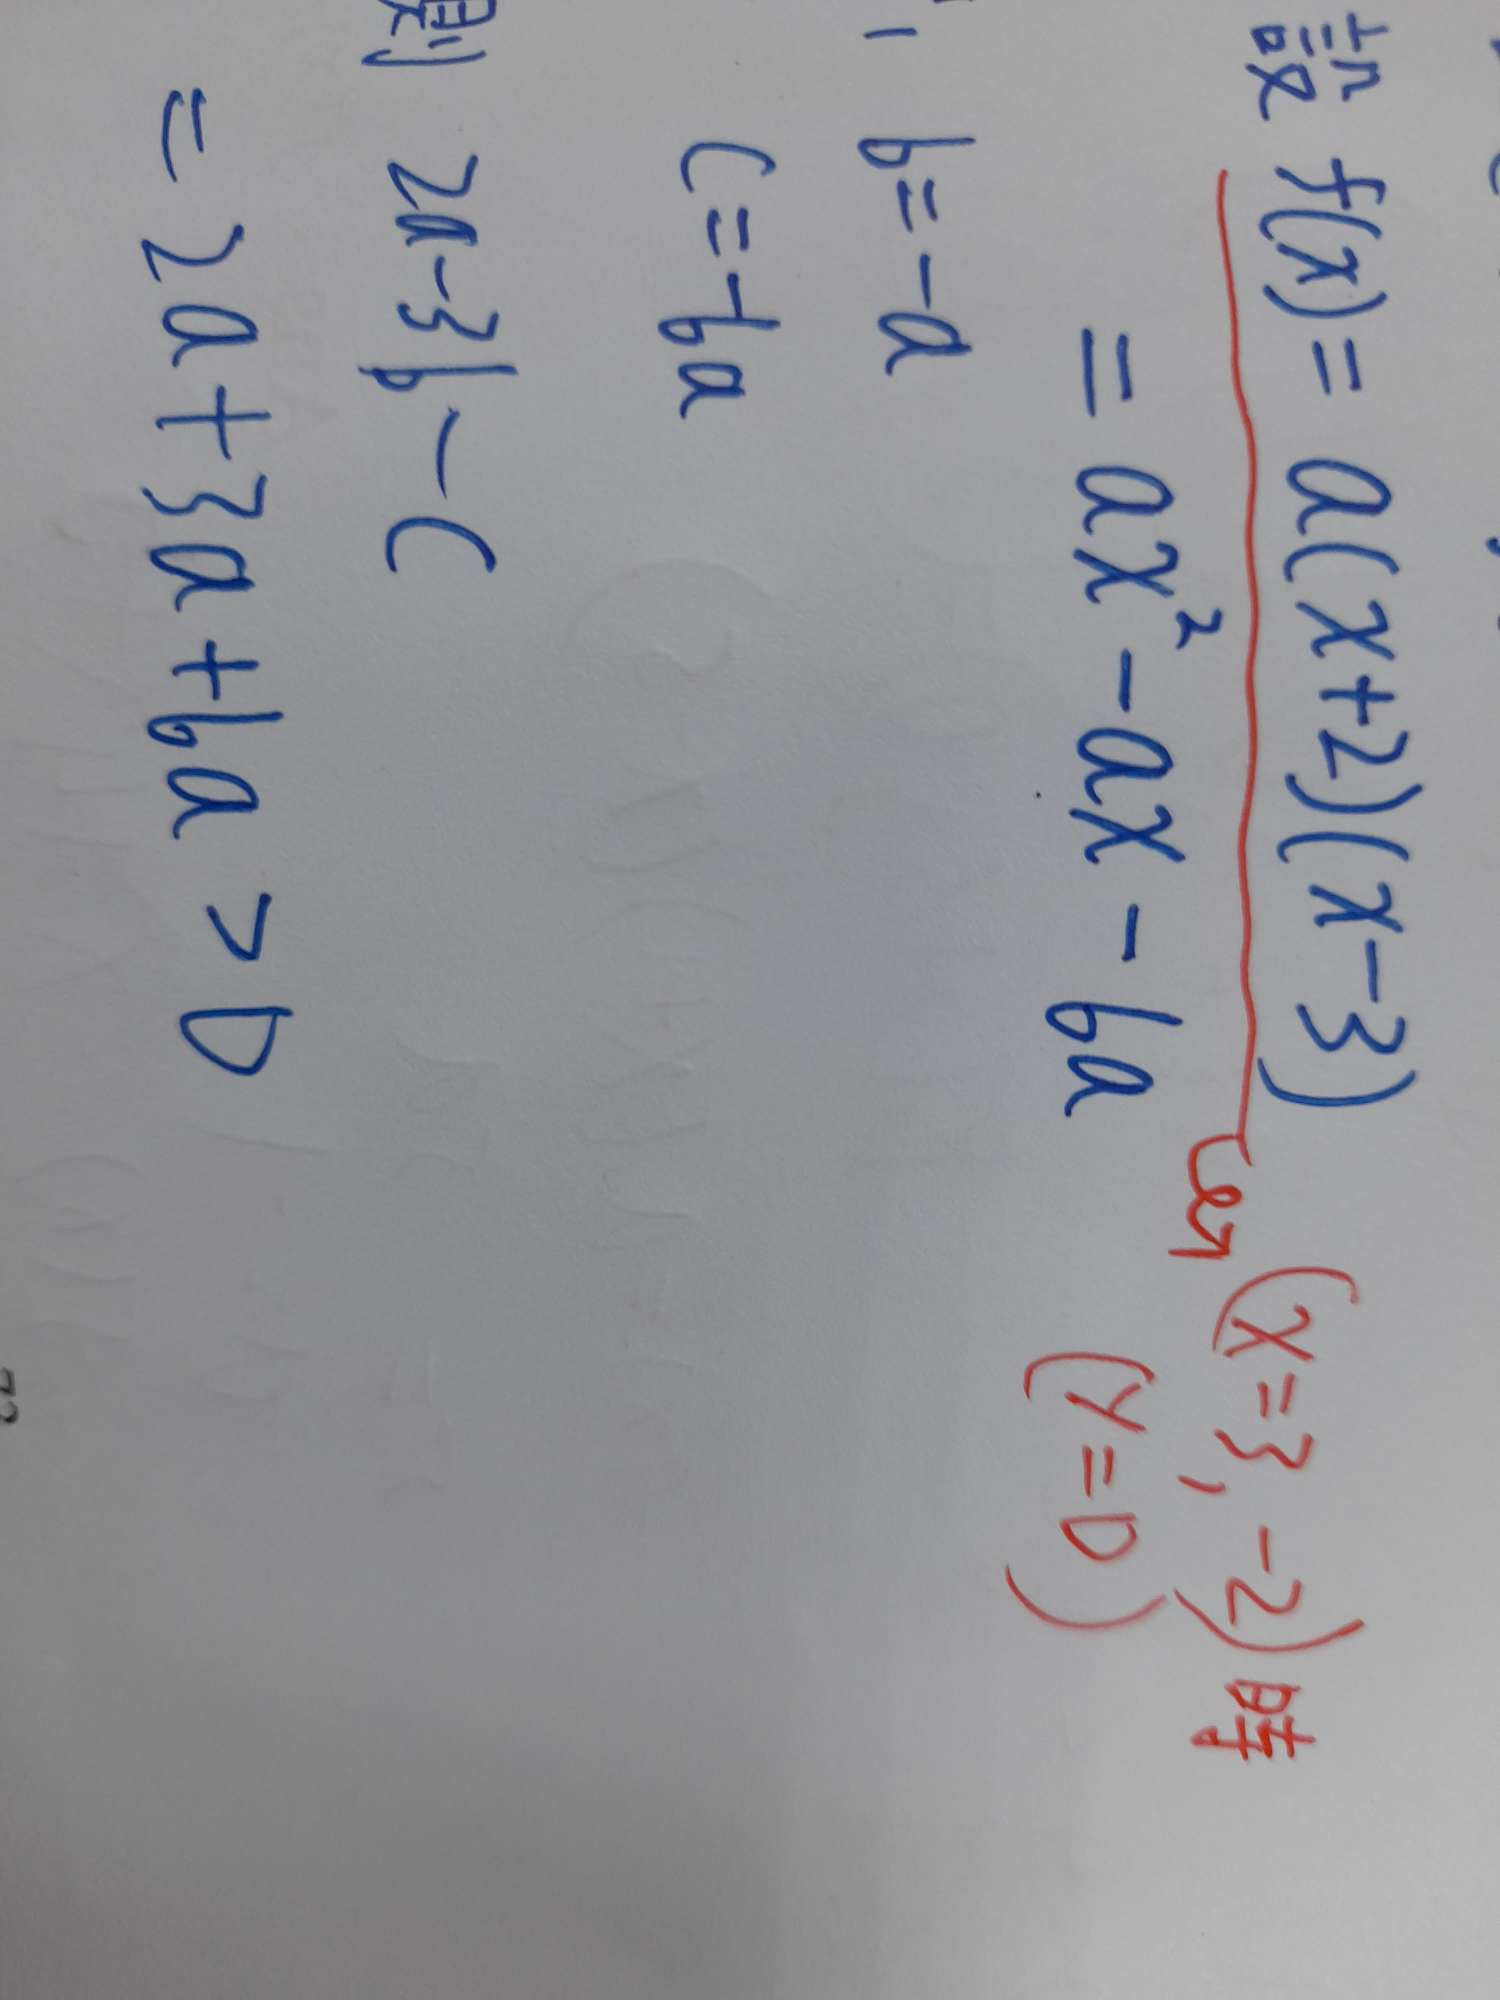 設 f(x) = a(x+2)(x-3)
(x=3, -2)時
(y=0)
= ax² - ax - 6a
b = -a
c = -6a
則 2a-3b-c
= 2a+3a+6a > 0